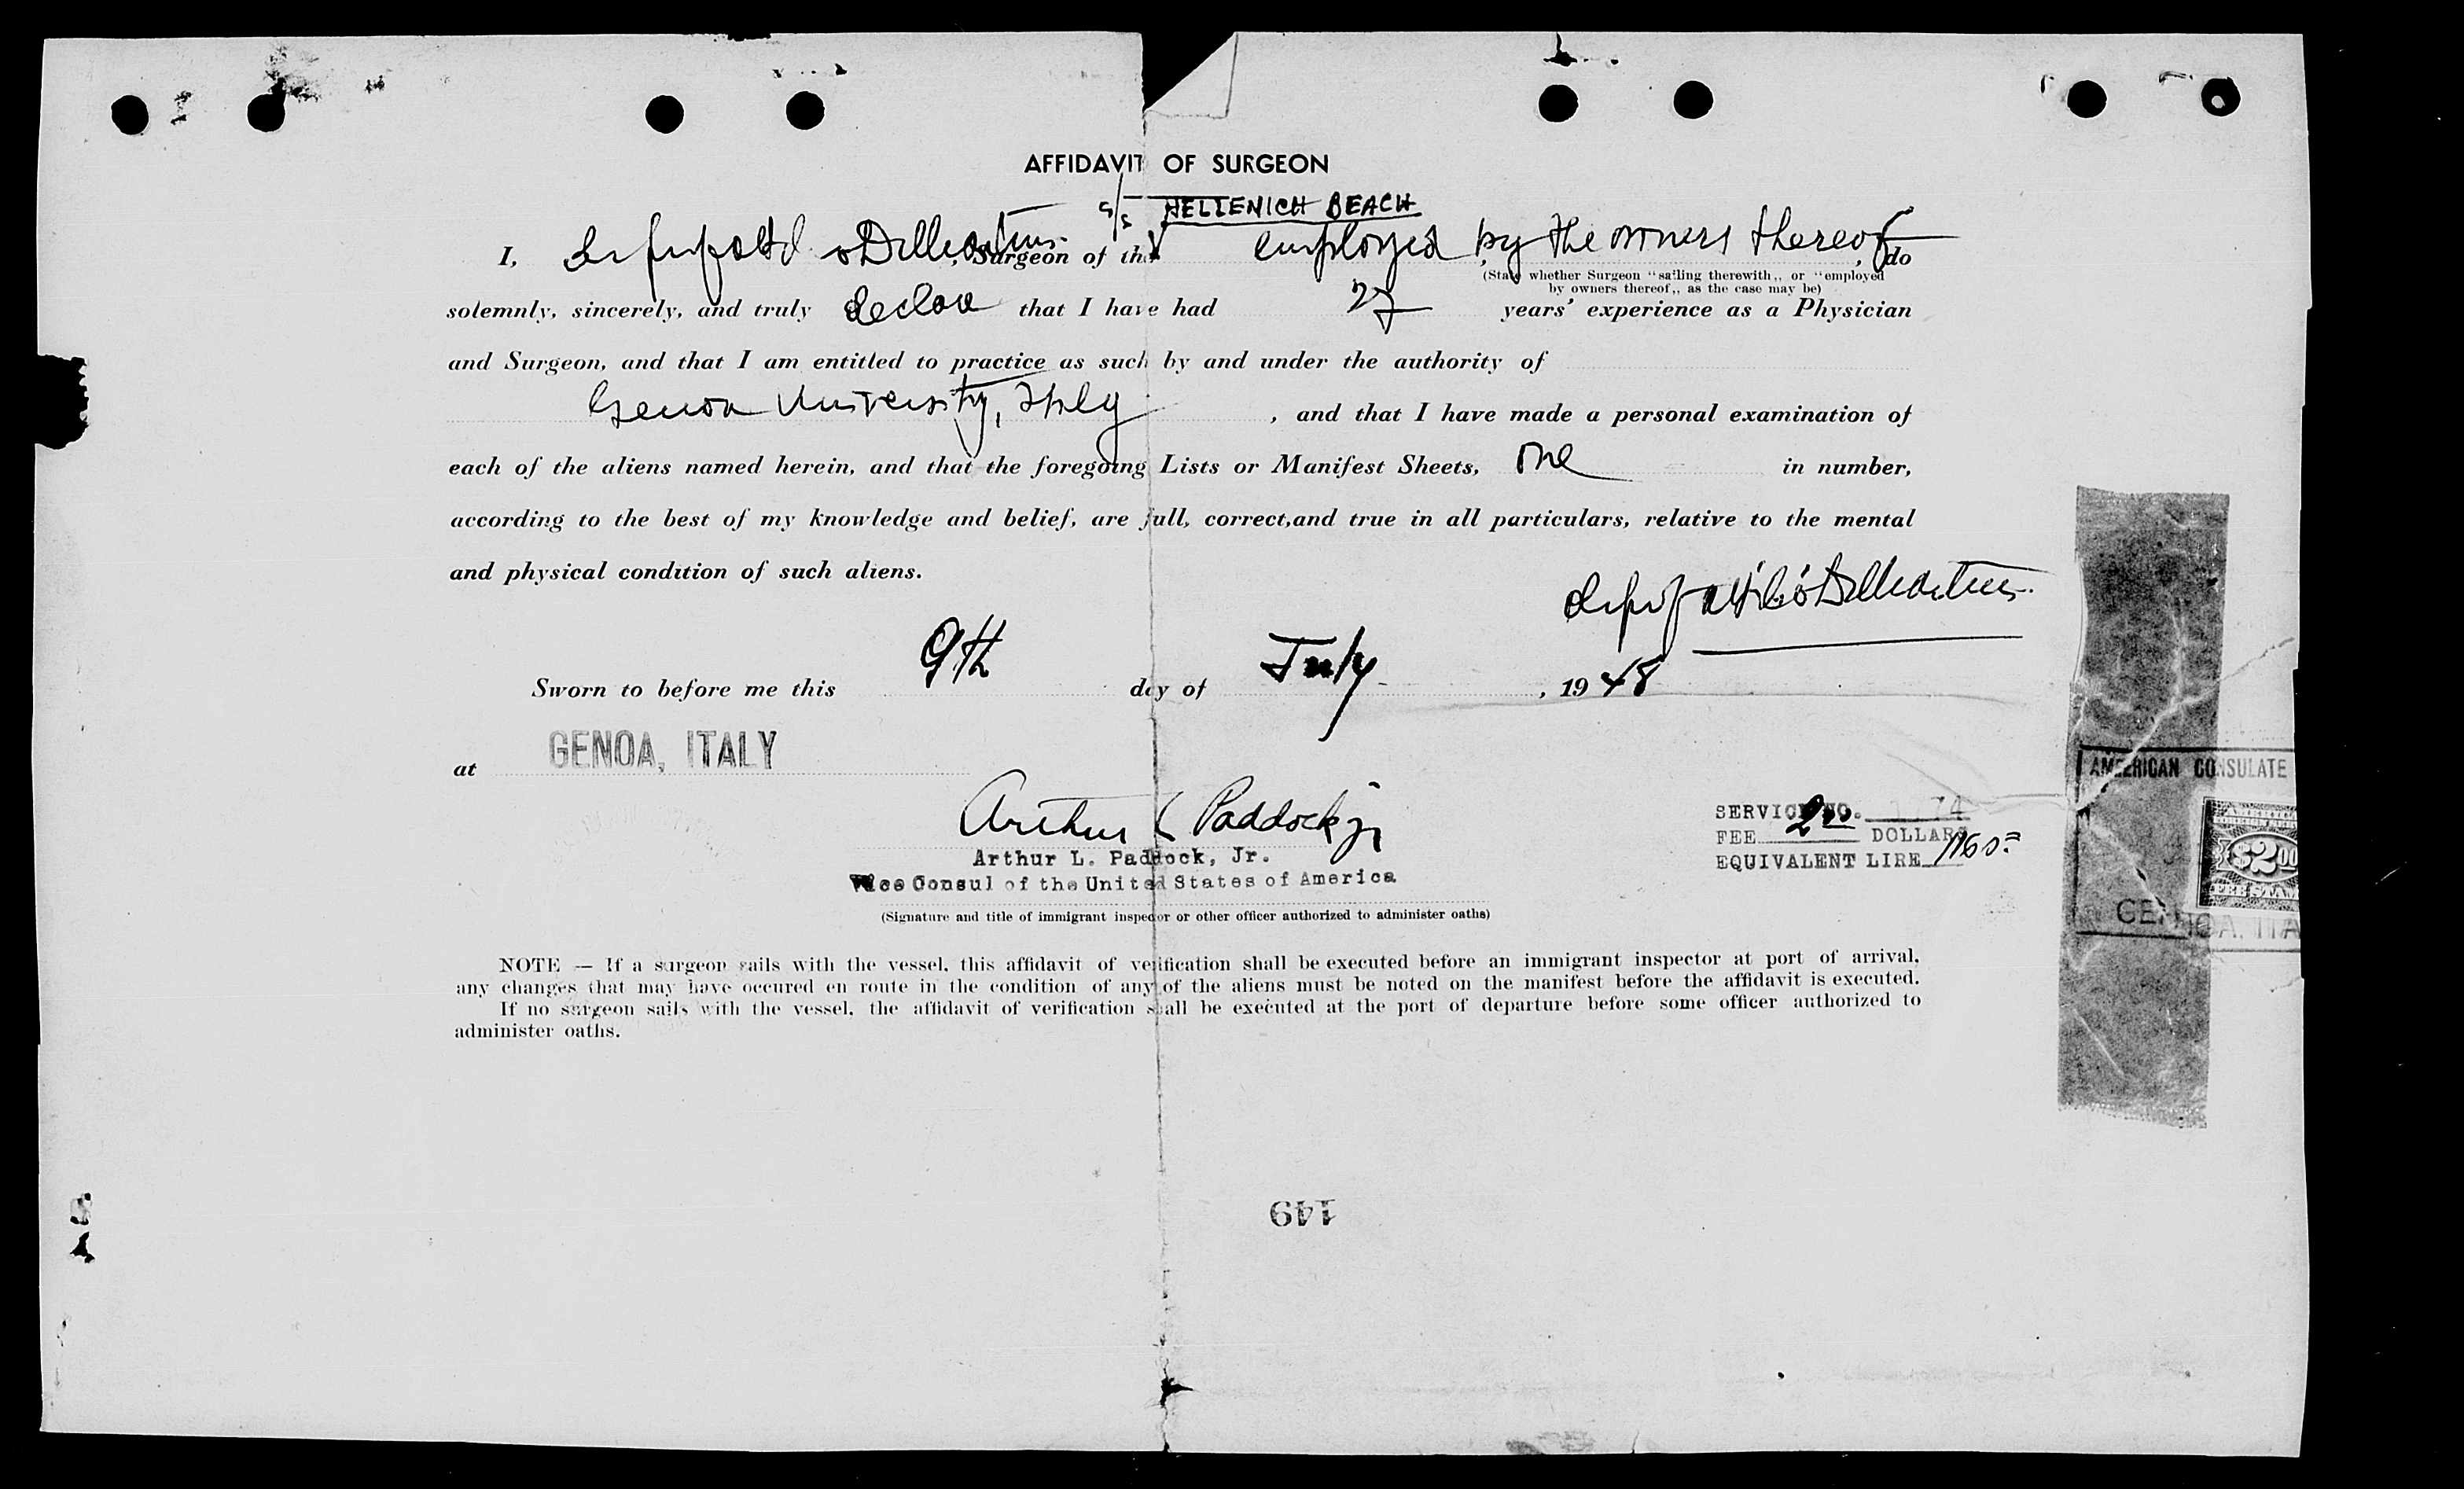 AFFIDAVIT OF SURGEON
S/S HELLENICH BEACH
I, , Surgeon of the employed by the owners thereof, do
(State whether Surgeon "sailing therewith,, or "employed
by owners thereof,, as the case may be)
solemnly, sincerely, and truly declare that I have had 27 years' experience as a Physician
and Surgeon, and that I am entitled to practice as such by and under the authority of
Genoa University, Italy , and that I have made a personal examination of
each of the aliens named herein, and that the foregoing Lists or Manifest Sheets, one in number,
according to the best of my knowledge and belief, are full, correct,and true in all particulars, relative to the mental
and physical condition of such aliens.
Sworn to before me this 9th day of July , 19 48
at GENOA, ITALY
Arthur L Paddock jr
Arthur L. Paddock, Jr.
Vice Consul of the United States of America
(Signature and title of immigrant inspector or other officer authorized to administer oaths)
SERVICE NO. 74
FEE 2.00 DOLLARS
EQUIVALENT LIRE 1160.=
AMERICAN CONSULATE
$2.00
FEE STAM
GENOA, ITA
NOTE — If a surgeon sails with the vessel, this affidavit of verification shall be executed before an immigrant inspector at port of arrival,
any changes that may have occured en route in the condition of any of the aliens must be noted on the manifest before the affidavit is executed.
If no surgeon sails with the vessel, the affidavit of verification shall be executed at the port of departure before some officer authorized to
administer oaths.
149